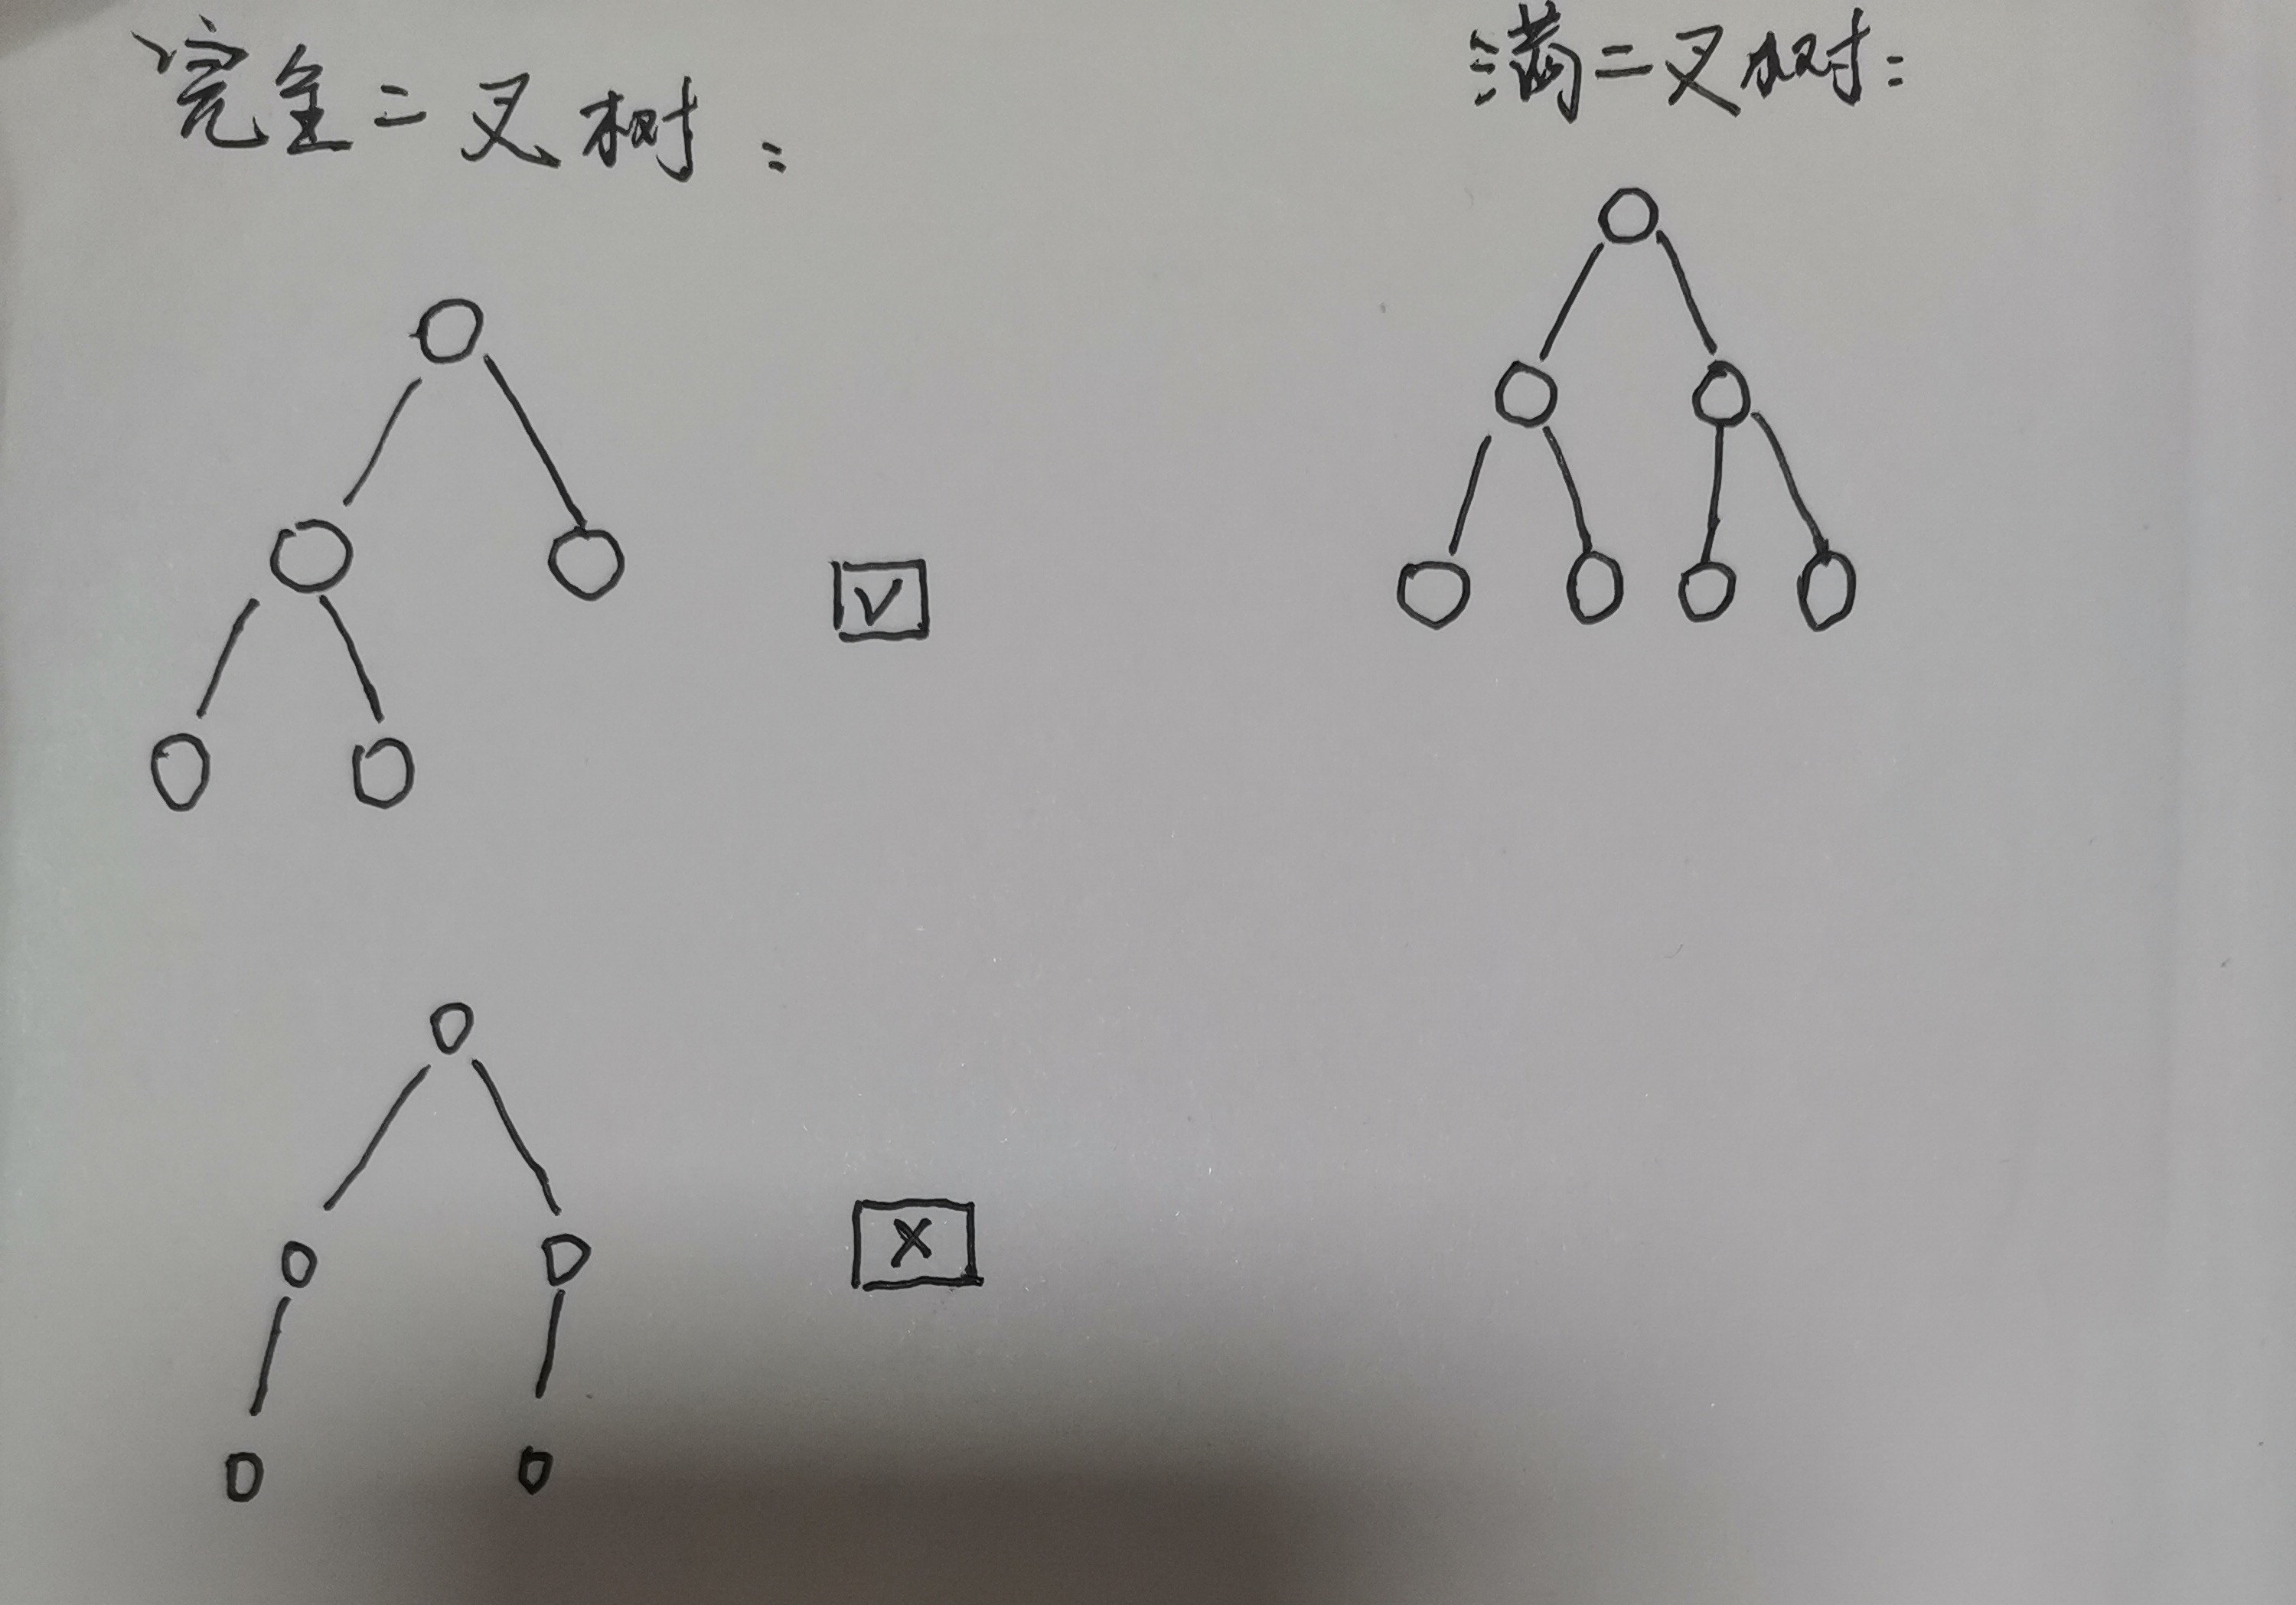 完全二叉树：
满二叉树：
√
×